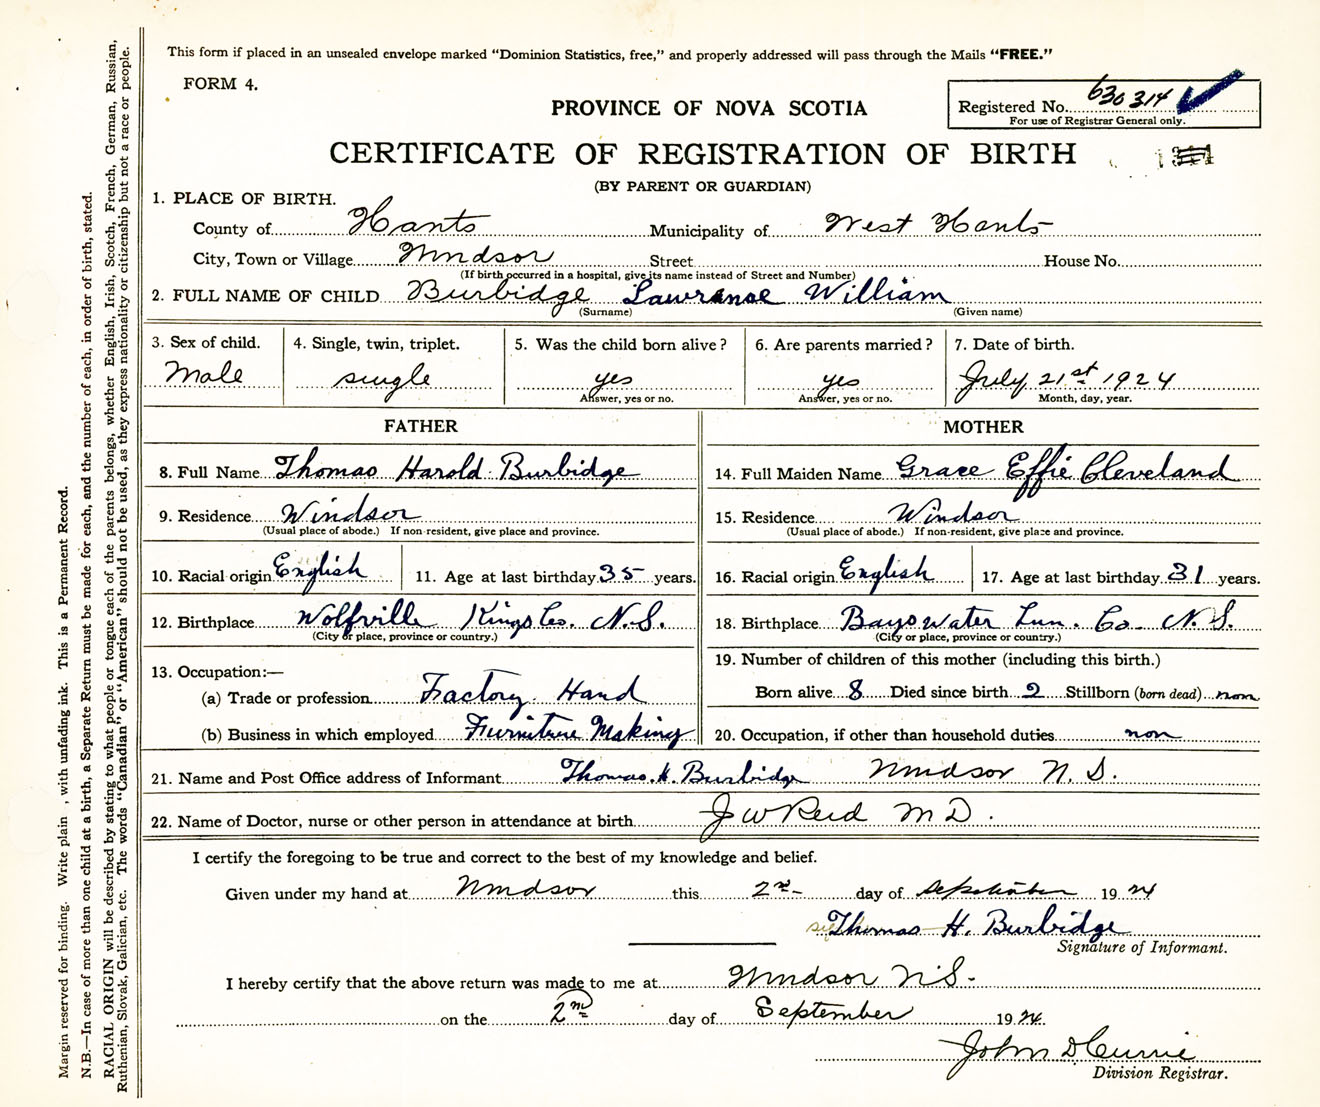 This form if placed in an unsealed envelope marked “Dominion Statistics, free,” and properly addressed will pass through the Mails “FREE.”
FORM 4.
PROVINCE OF NOVA SCOTIA
Registered No. 630314
For use of Registrar General only.
CERTIFICATE OF REGISTRATION OF BIRTH
(BY PARENT OR GUARDIAN)
1. PLACE OF BIRTH.
County of Hants Municipality of West Hants
City, Town or Village Windsor Street House No.
(If birth occurred in a hospital, give its name instead of Street and Number)
2. FULL NAME OF CHILD Burbidge Lawrance William
(Surname) (Given name)
3. Sex of child. 4. Single, twin, triplet. 5. Was the child born alive? 6. Are parents married? 7. Date of birth.
Male single yes yes July 21st 1924
Answer, yes or no. Answer, yes or no. Month, day, year.
FATHER MOTHER
8. Full Name Thomas Harold Burbidge 14. Full Maiden Name Grace Effie Cleveland
9. Residence Windsor 15. Residence Windsor
(Usual place of abode.) If non-resident, give place and province. (Usual place of abode.) If non-resident, give place and province.
10. Racial origin English 11. Age at last birthday 35 years. 16. Racial origin English 17. Age at last birthday 31 years.
12. Birthplace Wolfville Kings Co. N.S. 18. Birthplace Bayswater Lun. Co. N.S.
(City or place, province or country.) (City or place, province or country.)
13. Occupation:— 19. Number of children of this mother (including this birth.)
(a) Trade or profession Factory Hand Born alive 8 Died since birth 2 Stillborn (born dead) non
(b) Business in which employed Furniture Making 20. Occupation, if other than household duties non
21. Name and Post Office address of Informant Thomas H. Burbidge Windsor N.S.
22. Name of Doctor, nurse or other person in attendance at birth J W Reid M D.
I certify the foregoing to be true and correct to the best of my knowledge and belief.
Given under my hand at Windsor this 2nd day of September 1924
Thomas H. Burbidge
Signature of Informant.
I hereby certify that the above return was made to me at Windsor N.S.
on the 2nd day of September 1924.
John D Currie
Division Registrar.
Margin reserved for binding. Write plain , with unfading ink. This is a Permanent Record.
N.B.—In case of more than one child at a birth, a Separate Return must be made for each, and the number of each, in order of birth, stated.
RACIAL ORIGIN will be described by stating to what people or tongue each of the parents belongs, whether English, Irish, Scotch, French, German, Russian,
Ruthenian, Slovak, Galician, etc. The words “Canadian” or “American” should not be used, as they express nationality or citizenship but not a race or people.